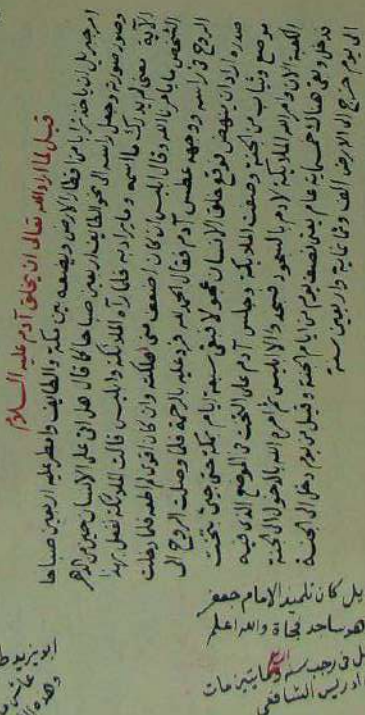 قيل لما اراد الله تعالى ان يخلق آدم عليه السلام
امر جبريل ان ياخذ ترابا من اقطار الارض ويضعه بين مكة والطايف وامطر عليه اربعين صباحا
وصور صورته وجعل راسه الى نحو الطايف اربعين صباحا كما قال هل اتى على الانسان حين من الدهر
الآية معنى لم يدرك ما اسمه وما يراد به فلما رآه الملائكة وابليس قالت الملائكة نفعل بهذا
الشخص ما يامرنا الله وقال ابليس ان كان اضعف مني اهلكته وان كان اقوى لم اطعه فلما دخلت
الروح في راسه ووجهه عطس آدم فقال الحمد لله فرد عليه بالرحمة فلما وصلت الروح الى
صدره اراد ان ينهض فوقع خلق الانسان عجولا فبقى سبعة ايام بمكة حتى جيئ بتخت
موضع وثياب من الجنة وصفت الملائكة وجلس آدم على التخت في الموضع الذي فيه
الكعبة الآن وامر الله الملائكة لادم بالسجود فسجدوا الا ابليس ثم امره الله بالدخول الى الجنة
فدخل وبقى هناك خمسماية عام يعنى نصف يوم من ايام الجنة وقيل من يوم دخل الى الجنة
الى يوم خرج الى الارض الف وثمانماية واربعين سنة
يل كان تلميذ الامام جعفر
هو ساجد فجاة والله اعلم
ل فى رجب سنة
ادريس الشافعى
ابو يزيد
وهذه